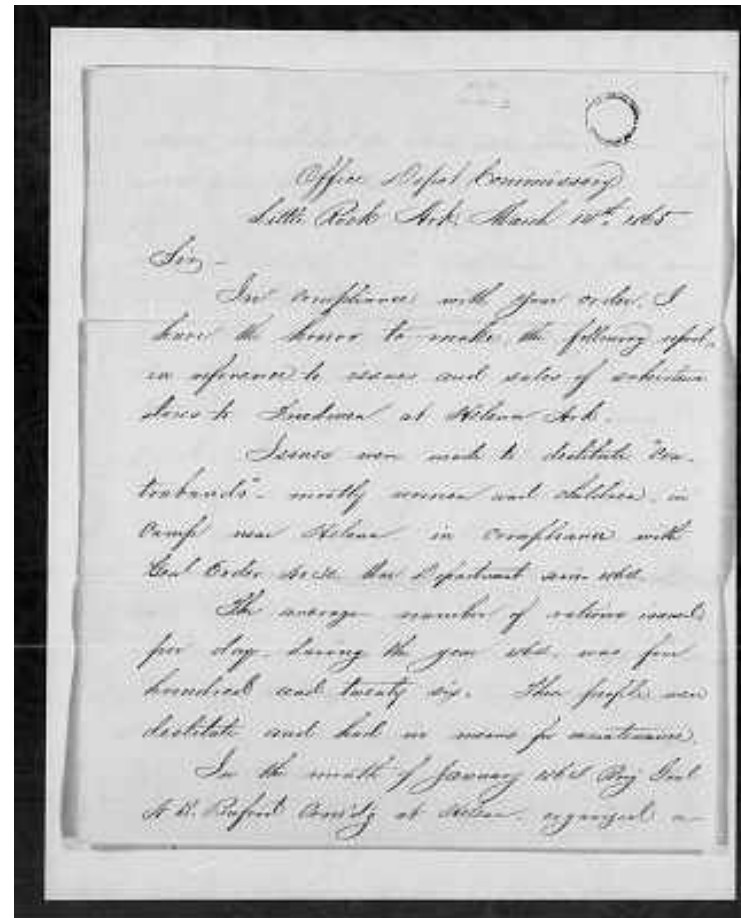 Office Depot Commissary
Little Rock Ark. March 10th 1865
Sir -
In compliance with your order, I
have the honor to make the following report
in reference to issues and sales of subsistence
stores to Freedmen at Helena Ark.
Issues were made to destitute "con-
trabands" - mostly women and children, in
Camp near Helena in compliance with
Genl Order War Department
The average number of rations issued
per day, during the year was four
hundred and twenty six. These people were
destitute and had no means for maintenance.
In the month of January Brig Genl
N. B. Buford Comdg at Helena, organized a